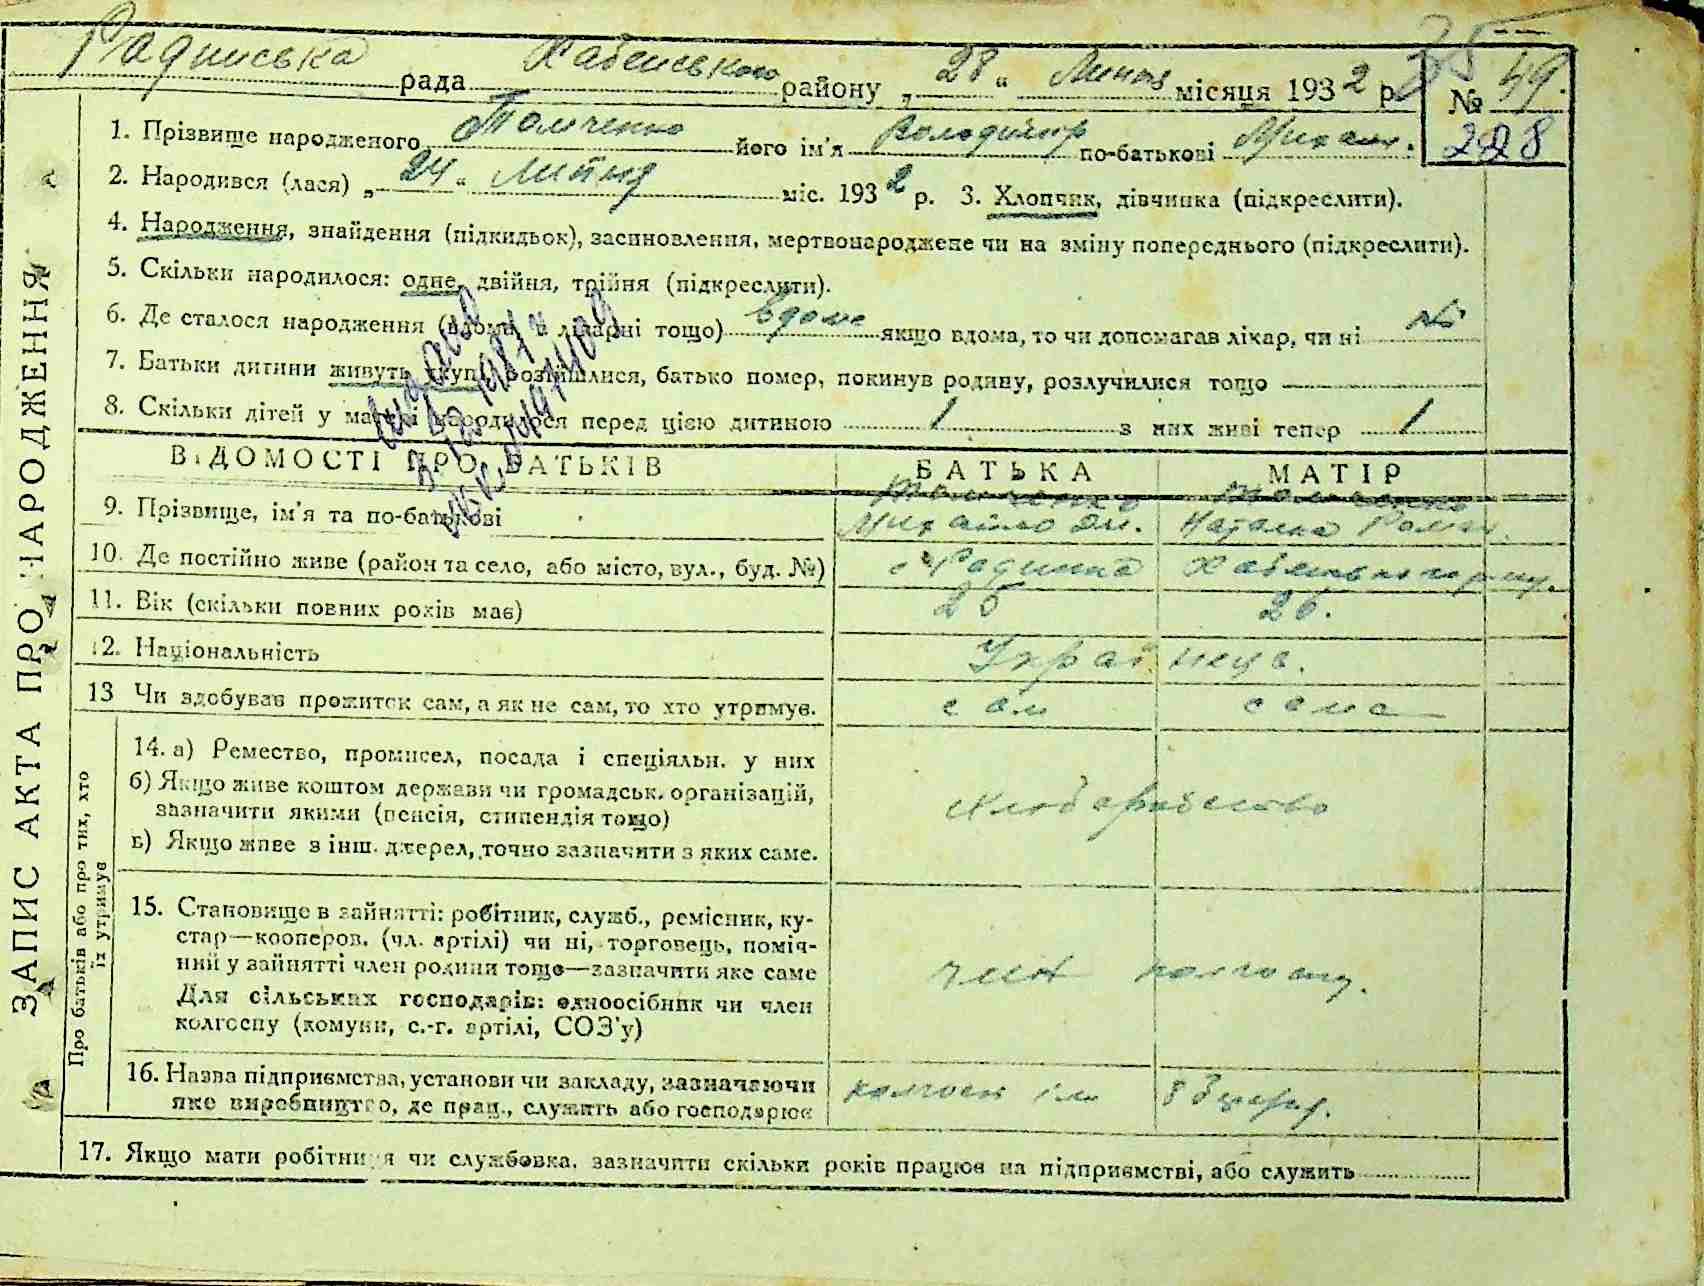 Радинська рада Хабенського району „28“ Липня місяця 1932 р. № 49.
35
228
1. Прізвище народженого Толченко його ім'я Володимир по-батькові Михайл.
2. Народився (лася) „24“ липня міс. 1932 р. 3. Хлопчик, дівчинка (підкреслити).
4. Народження, знайдення (підкидьок), засиновлення, мертвонароджене чи на зміну попереднього (підкреслити).
5. Скільки народилося: одне, двійня, трійня (підкреслити).
6. Де сталося народження (вдома, в лікарні тощо) вдома якщо вдома, то чи допомагав лікар, чи ні ні
7. Батьки дитини живуть вкупі, розійшлися, батько помер, покинув родину, розлучилися тощо
8. Скільки дітей у матері народилося перед цією дитиною 1 з них живі тепер 1
ВІДОМОСТІ ПРО БАТЬКІВ БАТЬКА МАТІР
9. Прізвище, ім'я та по-батькові Толченко Михайло Дм. Толченко Наталка Роман.
10. Де постійно живе (район та село, або місто, вул., буд. №) с Радинка Хабенського р-ну.
11. Вік (скільки повних років має) 26 26.
12. Національність Українець.
13 Чи здобував прожиток сам, а як не сам, то хто утримує. сам сама
ЗАПИС АКТА ПРО НАРОДЖЕННЯ
Про батьків або про тих, хто
їх утримує
14. а) Ремество, промисел, посада і спеціяльн. у них
б) Якщо живе коштом держави чи громадськ. організацій,
зазначити якими (пенсія, стипендія тощо)
в) Якщо живе з інш. джерел, точно зазначити з яких саме.
хліборобство
15. Становище в зайнятті: робітник, служб., ремісник, ку-
стар—кооперов. (чл. артілі) чи ні, торговець, поміч-
ний у зайнятті член родини тощо—зазначити яке саме
Для сільських господарів: одноосібник чи член
колгоспу (комуни, с.-г. артілі, СОЗ'у)
член колгоспу.
16. Назва підприємства, установи чи закладу, зазначаючи
яке виробництво, де прац., служить або господарює
колгосп ім
17. Якщо мати робітниця чи службовка, зазначити скільки років працює на підприємстві, або служить